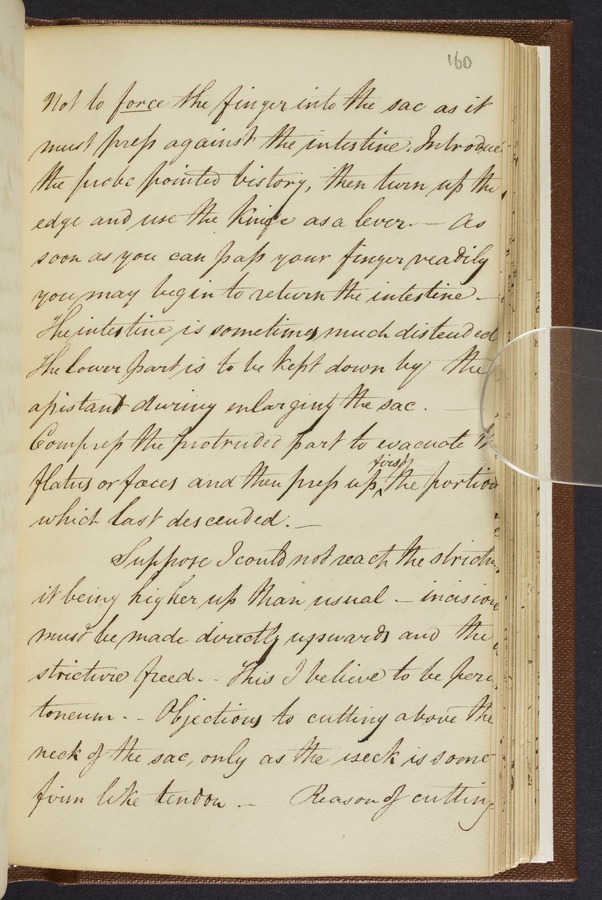 160
Not to force the finger into the sac as it
must press against the intestine. Introduce
the probe pointed bistory, then turn up the
edge and use the knife as a lever. — As
soon as you can pass your finger readily
you may begin to return the intestine —
The intestine is sometimes much distended
The lower part is to be kept down by the
assistant during enlarging the sac. —
Compress the protruded part to evacuate
flatus or fæces and then press up first the portion
which last descended. —
Suppose I could not reach the strictu
it being higher up than usual — incision
must be made directly upwards and the
stricture freed. - This I believe to be peri
toneum. - Objections to cutting above the
neck of the sac, only as the neck is some
firm like tendon — Reason of cutting